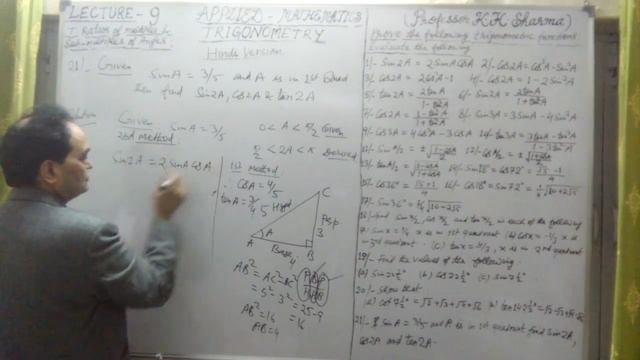 LECTURE - 9
APPLIED - MATHEMATICS
(Professor K.K. Sharma)
T. Ratios of multiple &
Sub-multiples of Angles.
TRIGONOMETRY
Hindi Version
21/- Given
Sin A = 3/5 and A is in 1st Quad
then find Sin 2A, Cos 2A & tan 2A
Solution
Given Sin A = 3/5
0 < A < π/2 Given
0 < 2A < π Derived
2nd Method:
Sin 2A = 2 Sin A Cos A
1st Method
∴ Cos A = 4/5
tan A = 3/4
5 Hyp
C
Perp
3
A
A
B
Base
4
AB² = AC² - BC²
= 5² - 3² = 25 - 9
AB² = 16 = 16
AB = 4
Prove the following trigonometric functions
Evaluate the following
1/- Sin 2A = 2 Sin A Cos A 2/- Cos 2A = Cos²A - Sin²A
3/- Cos 2A = 2 Cos²A - 1 4/- Cos 2A = 1 - 2 Sin²A
5/- tan 2A = 2 tan A / 1 - tan²A 6/- Sin 2A = 2 tan A / 1 + tan²A
7/- Cos 2A = 1 - tan²A / 1 + tan²A 8/- Sin 3A = 3 Sin A - 4 Sin³A
9/- Cos 3A = 4 Cos³A - 3 Cos A 10/- tan 3A = 3 tan A - tan³A / 1 - 3 tan²A
11/- Sin A/2 = ± √1 - Cos A / 2 12/- Cos A/2 = ± √1 + Cos A / 2
13/- tan A/2 = ± √1 - Cos A / 1 + Cos A 14/- Sin 18° = Cos 72° = √5 - 1 / 4
15/- Cos 36° = √5 + 1 / 4 16/- Cos 18° = Sin 72° = 1/4 √10 + 2√5
17/- Sin 36° = 1/4 √10 - 2√5
18/- find Sin x/2, Cos x/2 and tan x/2 in each of the following
in 3rd quadrant (c) tan x = -4/3, x is in 2nd quadrant
19/- Find the values of the following
(a) Sin 22½° (b) Cos 22½° (c) Sin 7½°
20/- Show that
(a) Cot 7½° = √2 + √3 + √4 + √6
21/- If Sin A = 3/5 and A is in 1st quadrant find Sin 2A,
Cos 2A and tan 2A.